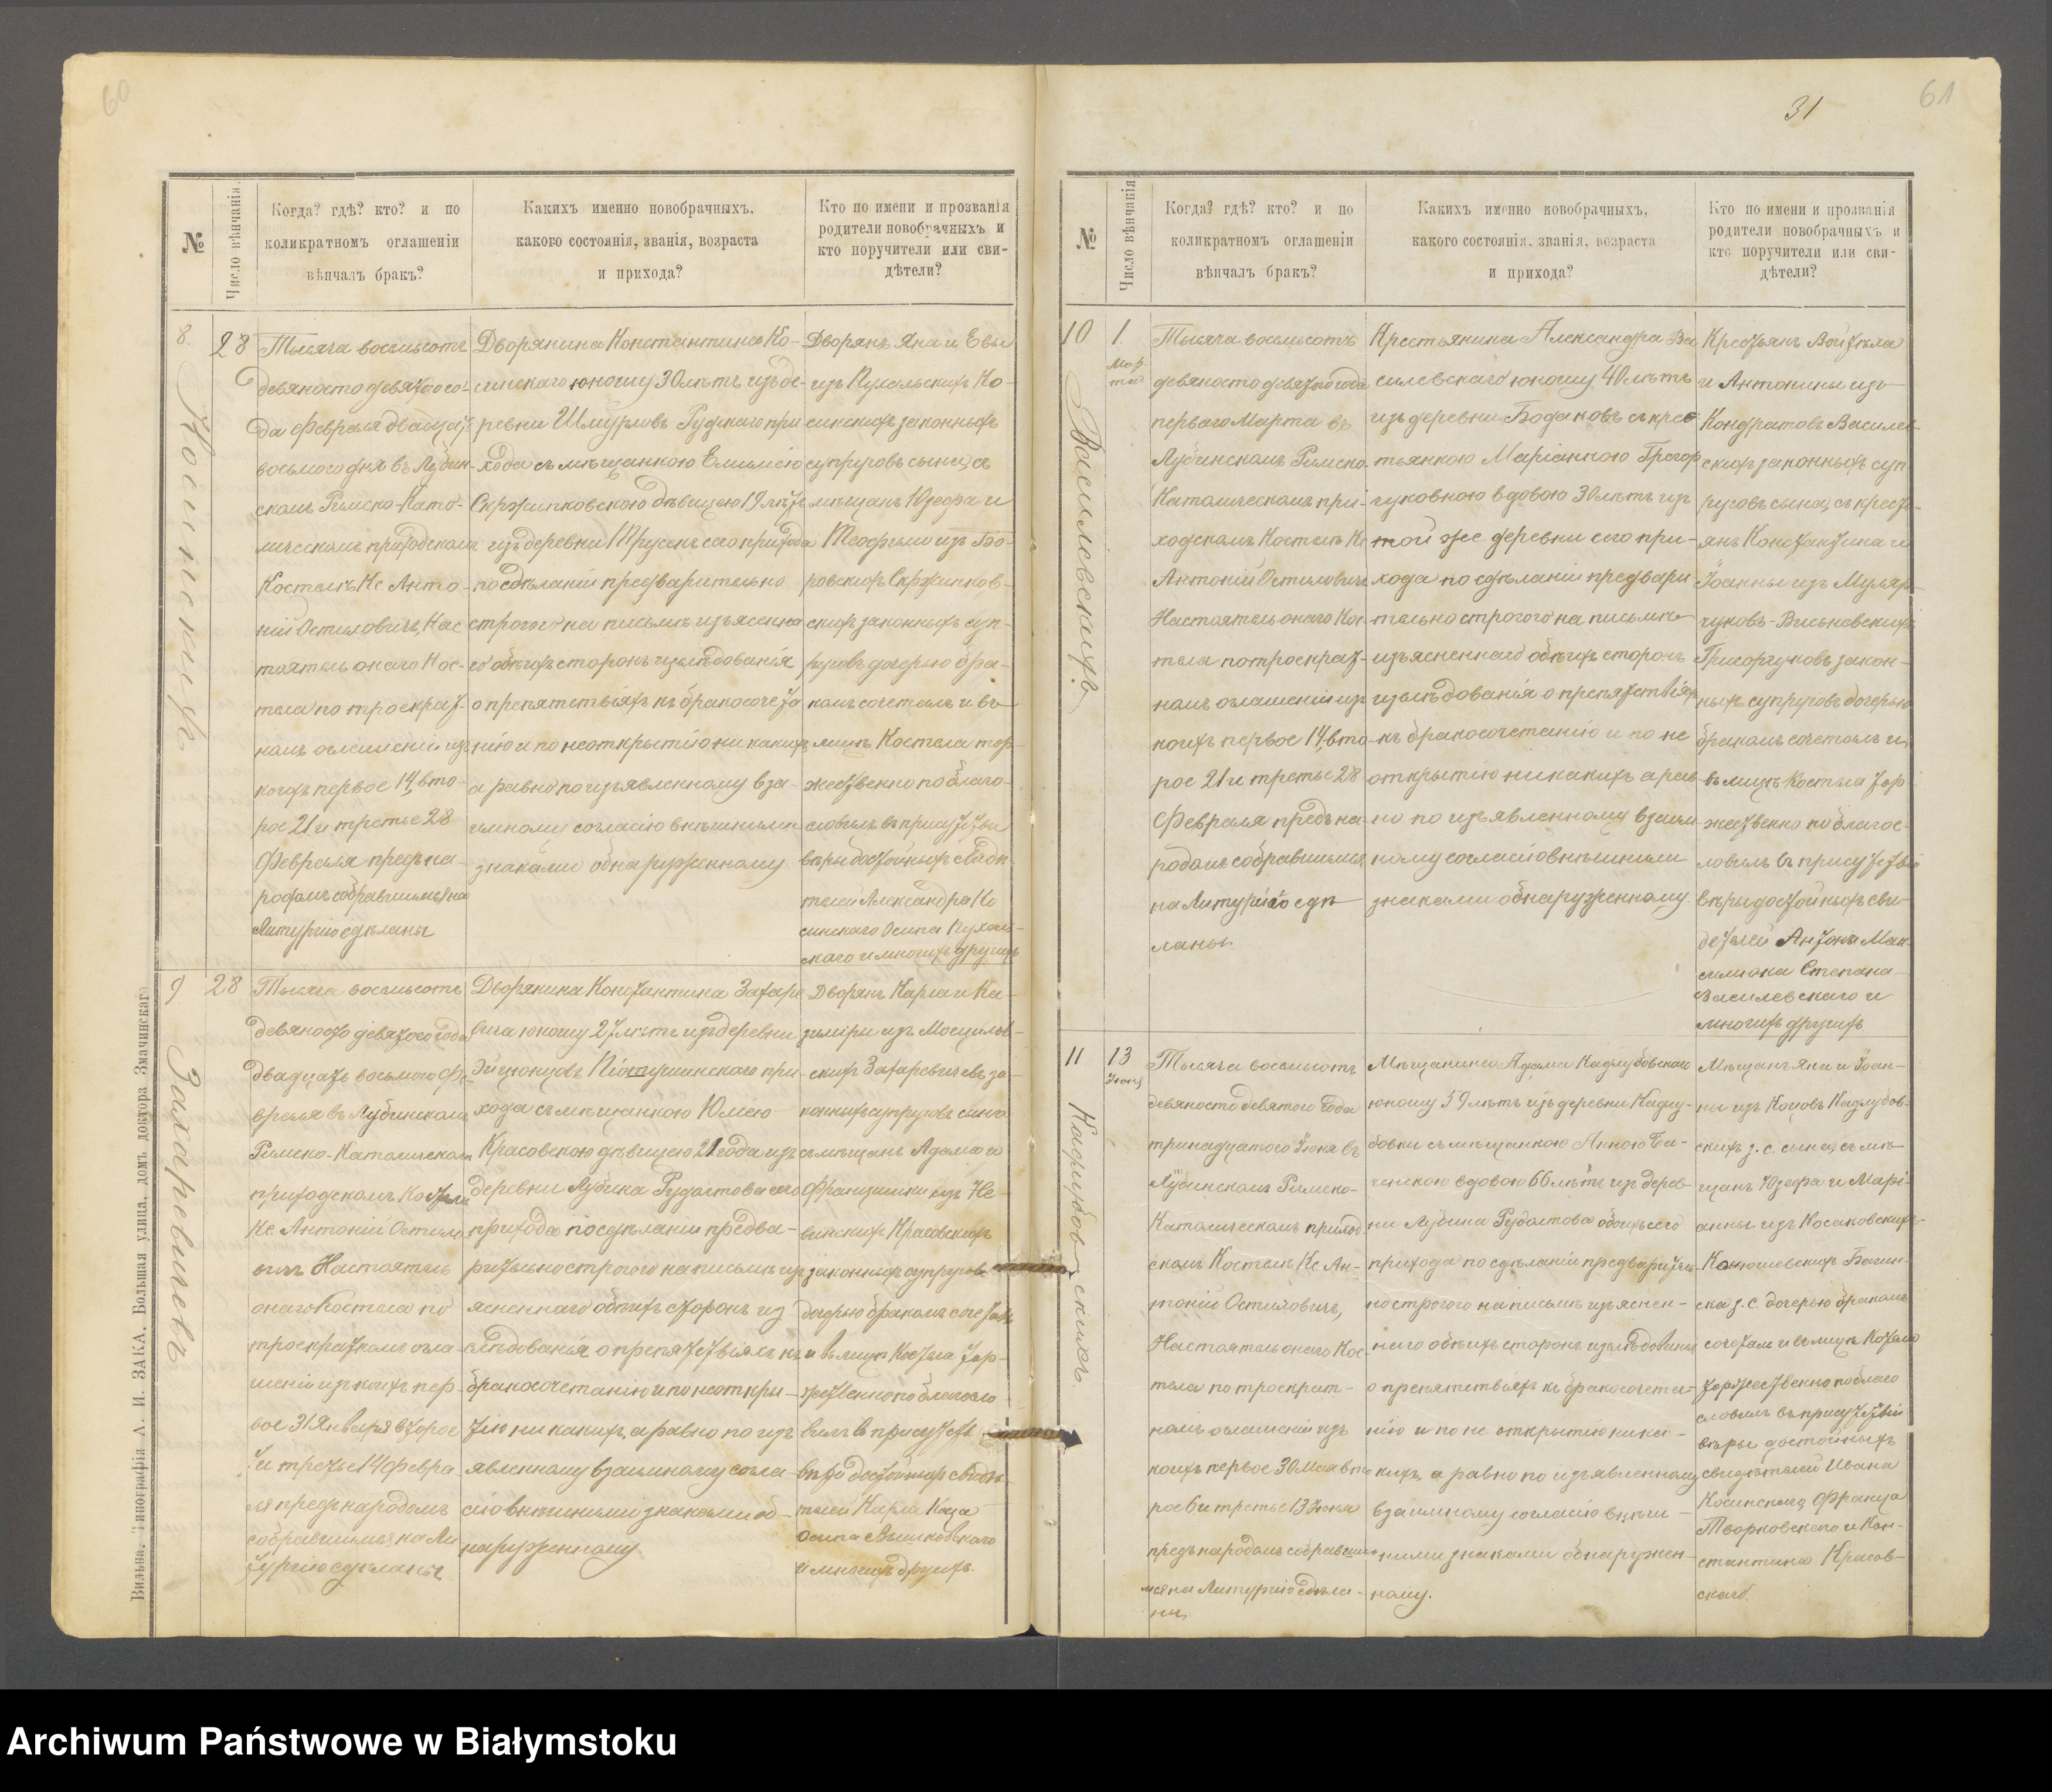 60
31
61
№
Число вѣнчанія.
Когда? гдѣ? кто? и по
коликратномъ оглашеніи
вѣнчалъ бракъ?
Какихъ именно новобрачныхъ,
какого состоянія, званія, возраста
и прихода?
Кто по имени и прозванія
родители новобрачныхъ и
кто поручители или сви-
дѣтели?
8.
28
Косинскихъ
Тысяча восемьсотъ
девяносто девятого го-
да Февраля двадцать
восьмого дня въ Лубин-
скомъ Римско-Като-
лическомъ приходскомъ
Костелѣ Кс. Анто-
ній Остиловичъ, Нас
тоятель онаго Кос-
тела по троекрат
номъ оглашеніи изъ
коихъ первое 14, вто-
рое 21 и третье 28
Февраля предъ на-
родомъ собравшимся на
Литургію сдѣланы
Дворянина Константина Ко-
синскаго юношу 30 лѣтъ изъ де-
ревни Шмурловъ Рудскаго при
хода съ мѣщанкою Емиліею
Скржипковскою дѣвицею 19 лѣтъ
изъ деревни Прусекъ сего прихода
по сдѣланіи предварительно
строгого на письмѣ изъяснен
о препятствіяхъ къ бракосочета
нію и по неоткрытію никакихъ
а равно по изъявленному вза-
имному согласію внѣшними
знаками обнаруженному
Дворянъ Яна и Евы
изъ Пухальскихъ Ко-
синскихъ законныхъ
супруговъ сына, съ
мѣщанъ Юзефа и
Теофили изъ Бо-
ровскихъ Скржипков-
скихъ законныхъ суп-
руговъ дочерью бра-
комъ сочеталъ и въ
лицѣ Костела тор-
жественно поблаго-
словилъ въ присутствіи
вѣры достойныхъ свидѣ
телей Александра Ко
синскаго Осипа Пухаль-
скаго и многихъ другихъ
9
28
Захаревичевъ
Тысяча восемьсотъ
девяносто девятого года
двадцать восьмого Фе-
враля въ Лубинскомъ
Римско-Католическомъ
приходскомъ Костелѣ
Кс. Антоній Остило
вичъ Настоятель
онаго Костела по
троекратномъ огла-
шеніи изъ коихъ пер-
вое 31 Января второе
и третье 14 Февра
ля предъ народомъ
собравшимся на Ли
тургію сдѣланы
Дворянина Константина Захаре
вича юношу 27 лѣтъ изъ деревни
хода съ мѣщанкою Юліею
Красовскою дѣвицею 21 года изъ
деревни Лубина Рудолтова сего
прихода по сдѣланіи предва-
рительно строгого на письмѣ изъ
ясненнаго обѣихъ сторонъ из
слѣдованія о препятствіяхъ къ
бракосочетанію и по неоткры-
тію никакихъ, а равно по изъ
явленному взаимному согла
сію внѣшними знаками об-
наруженному.
Дворянъ Карла и Ка-
зиміры изъ
скихъ Захаревичевъ за-
конныхъ супруговъ сына
съ мѣщанъ Адама и
Францишки изъ Не-
винскихъ Красовскихъ
законныхъ супруговъ
дочерью бракомъ сочеталъ
и въ лицѣ Костела тор-
жественно поблагосло
вилъ въ присутств
вѣры достойныхъ свидѣ
телей Карла Коца
Осипа
и многихъ другихъ.
Вильна. Типографія А. И. ЗАКА, Большая улица, домъ доктора Змачинскаго
№
Число вѣнчанія
Когда? гдѣ? кто? и по
коликратномъ оглашеніи
вѣнчалъ бракъ?
Какихъ именно новобрачныхъ,
какого состоянія, званія, возраста
и прихода?
Кто по имени и прозванія
родители новобрачныхъ и
кто поручители или сви-
дѣтели?
10
1.
Мар
та
Василевскихъ
Тысяча восемьсотъ
девяносто девятого года
первого Марта въ
Лубинскомъ Римско-
Католическомъ при-
ходскомъ Костелѣ Кс
Антоній Остиловичъ
Настоятель онаго Кос-
тела по троекрат-
номъ оглашеніи изъ
коихъ первое 14, вто-
рое 21 и третье 28
Февраля предъ на-
родомъ собравшимся
на Литургію сдѣ
ланы.
Крестьянина Александра Ва
силевскаго юношу 40 лѣтъ
изъ деревни Бодаковъ съ крес
тьянкою Маріанною Григор
чуковною вдовою 30 лѣтъ изъ
той же деревни сего при-
хода по сдѣланіи предвари
тельно строгого на письмѣ
изъясненнаго обѣихъ сторонъ
изслѣдованія о препятствіяхъ
къ бракосочетанію и по не
открытію никакихъ а рав
но по изъявленному взаим
ному согласію внѣшними
знаками обнаруженному.
Крестьянъ Войтѣха
и Антонины изъ
Кондратовъ Василев-
скихъ законныхъ суп
руговъ сына, съ кресть-
янъ Константина и
Іоанны изъ Муляр-
чуковъ-Висьневскихъ
Григорчуковъ закон-
ныхъ супруговъ дочерью
бракомъ сочеталъ и
въ лицѣ Костела тор
жественно поблагос-
ловилъ въ присутствіи
вѣры достойныхъ сви-
дѣтелей Антона Мак-
симюка Степана
Василевскаго и
многихъ другихъ
11
13
Іюня
Кадлубовскихъ
Тысяча восемьсотъ
девяносто девятого года
тринадцатого Іюня въ
Лубинскомъ Римско-
Католическомъ приход
скомъ Костелѣ Кс Ан-
тоній Остиловичъ,
Настоятель онаго Кос-
тела по троекрат-
номъ оглашеніи изъ
коихъ первое 30 Мая вто
рое 6 и третье 13 Іюня
предъ народомъ собравшим
ся на Литургію сдѣла-
ны.
Мѣщанина Адама Кадлубовскаго
юношу 59 лѣтъ изъ деревни Кадлу-
бовки съ мѣщанкою Анною Ба-
гинскою вдовою 66 лѣтъ изъ дерев-
ни Лубина Рудолтова обоихъ сего
прихода по сдѣланіи предваритель-
но строгого на письмѣ изъяснен-
наго обѣихъ сторонъ изслѣдованія
о препятствіяхъ къ бракосочета-
нію и по не открытію ника-
кихъ, а равно по изъявленному
взаимному согласію внѣш-
ними знаками обнаружен-
ному.
Мѣщанъ Яна и Іоан-
ны изъ Коцовъ Кадлубов-
скихъ з. с. сына, съ мѣ-
щанъ Юзефа и Марі-
анны изъ Косаковскихъ-
ска з. с. дочерью бракомъ
сочеталъ и въ лицѣ Костела
торжественно поблаго
словилъ въ присутствіи
вѣры достойныхъ
свидѣтелей Ивана
Косинскаго, Франца
Творковского и Кон-
стантина Красов-
скаго.
Archiwum Państwowe w Białymstoku